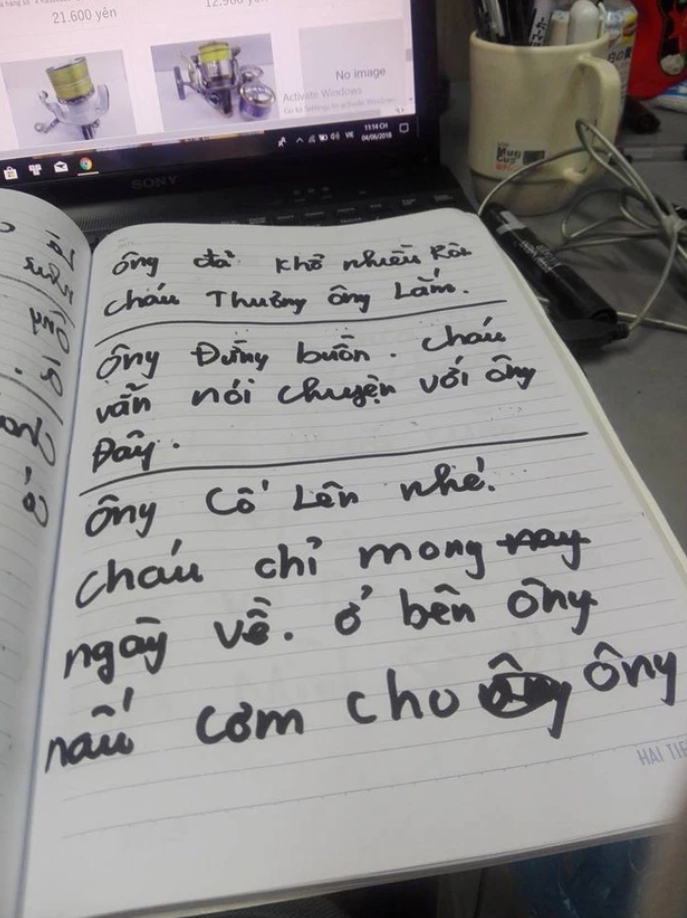 21.600 yên
No image
Activate Windows
Go to Settings to activate Windows.
11:14 CH
04/06/2018
VIE
SONY
MUG
CUP
ông đã khổ nhiều Rồi
cháu Thương ông Lắm.
ông Đừng buồn. cháu
vẫn nói chuyện với ông
Đây.
ông Cố Lên nhé.
cháu chỉ mong nay
ngày về. ở bên ông
nấu cơm cho ông ông
HẢI TIẾ